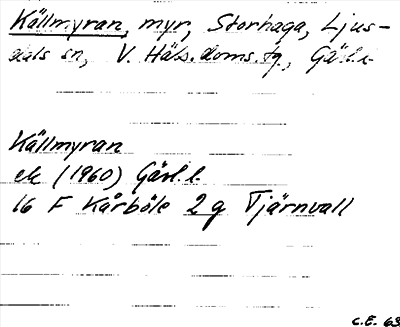 Källmyran, myr, Storhaga, Ljus-
dals sn, V. Häls. doms. tg., Gävl. l.
Källmyran
ek (1960) Gävl. l.
16 F Kårböle 2 g Tjärnvall
C.E. 63